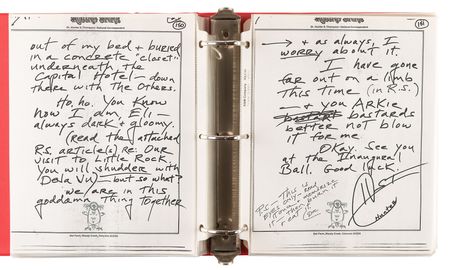 (150)
out of my bed & buried
in a concrete "closet"
underneath the
Capital Hotel — down
there with The Others.
Ho, ho. You Know
how I am, Eli —
always dark & gloomy.
(read the attached
R.S. article(s) re: Our
visit to Little Rock.
You will shudder with
"Deja Vu") — but so what?
we are in this
goddamn Thing Together
(151)
→ & as always, I
worry about it.
I have gone
far out on a limb
This time (in R.S.)
— & you ARKie
bastards
better not blow
it for me
Okay. See you
at the Inaugural
Ball. Good luck.
P.S. This is
Hunter